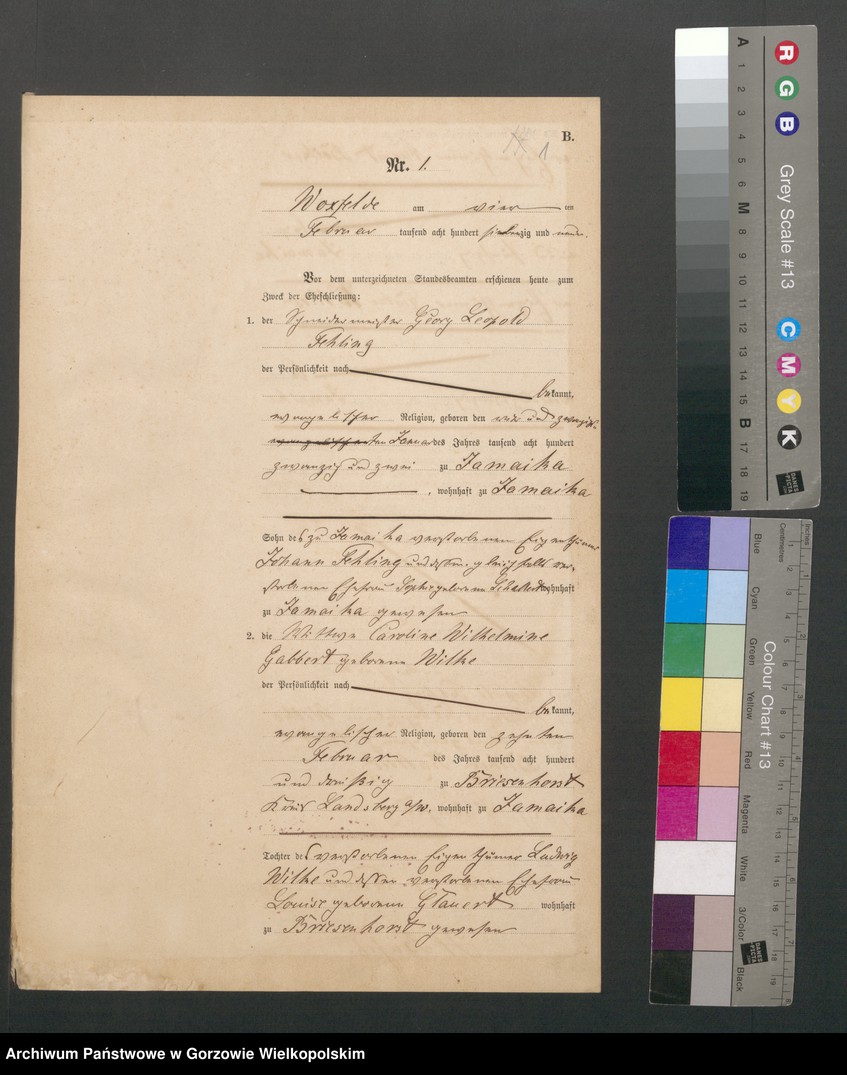 B.
1
Nr. 1.
Woxfelde am vier ten
Februar tausend acht hundert siebenzig und neun.
Vor dem unterzeichneten Standesbeamten erschienen heute zum
Zweck der Eheschließung:
1. der Schneidermeister Georg Leopold
Fehling
der Persönlichkeit nach
bekannt,
evangelischer Religion, geboren den ein und zwanzig-
evangelischer ten Januar des Jahres tausend acht hundert
zwanzig und zwei zu Jamaika
, wohnhaft zu Jamaika
Sohn des zu Jamaika verstorbenen Eigenthümers
Johann Fehling und dessen gleichfalls ver-
storbenen Ehefrau Sophie geborene wohnhaft
zu Jamaika gewesen
2. die Wittwe Caroline Wilhelmine
Gabbert geborene Wilke
der Persönlichkeit nach
bekannt,
evangelischer Religion, geboren den zehnten
Februar des Jahres tausend acht hundert
und dreißig zu Briesenhorst
Kreis Landsberg a/w, wohnhaft zu Jamaika
Tochter des verstorbenen Eigenthümer Ludwig
Wilke und dessen verstorbenen Ehefrau
Louise geborene Glauert wohnhaft
zu Briesenhorst gewesen
Grey Scale #13
R G B
C M Y K
A 1 2 3 4 5 6 M 8 9 10 11 12 13 14 15 B 17 18 19
DANES PICTA
Colour Chart #13
Blue
Cyan
Green
Yellow
Red
Magenta
White
3/Color
Black
Centimetres
Inches
DANES PICTA
Archiwum Państwowe w Gorzowie Wielkopolskim